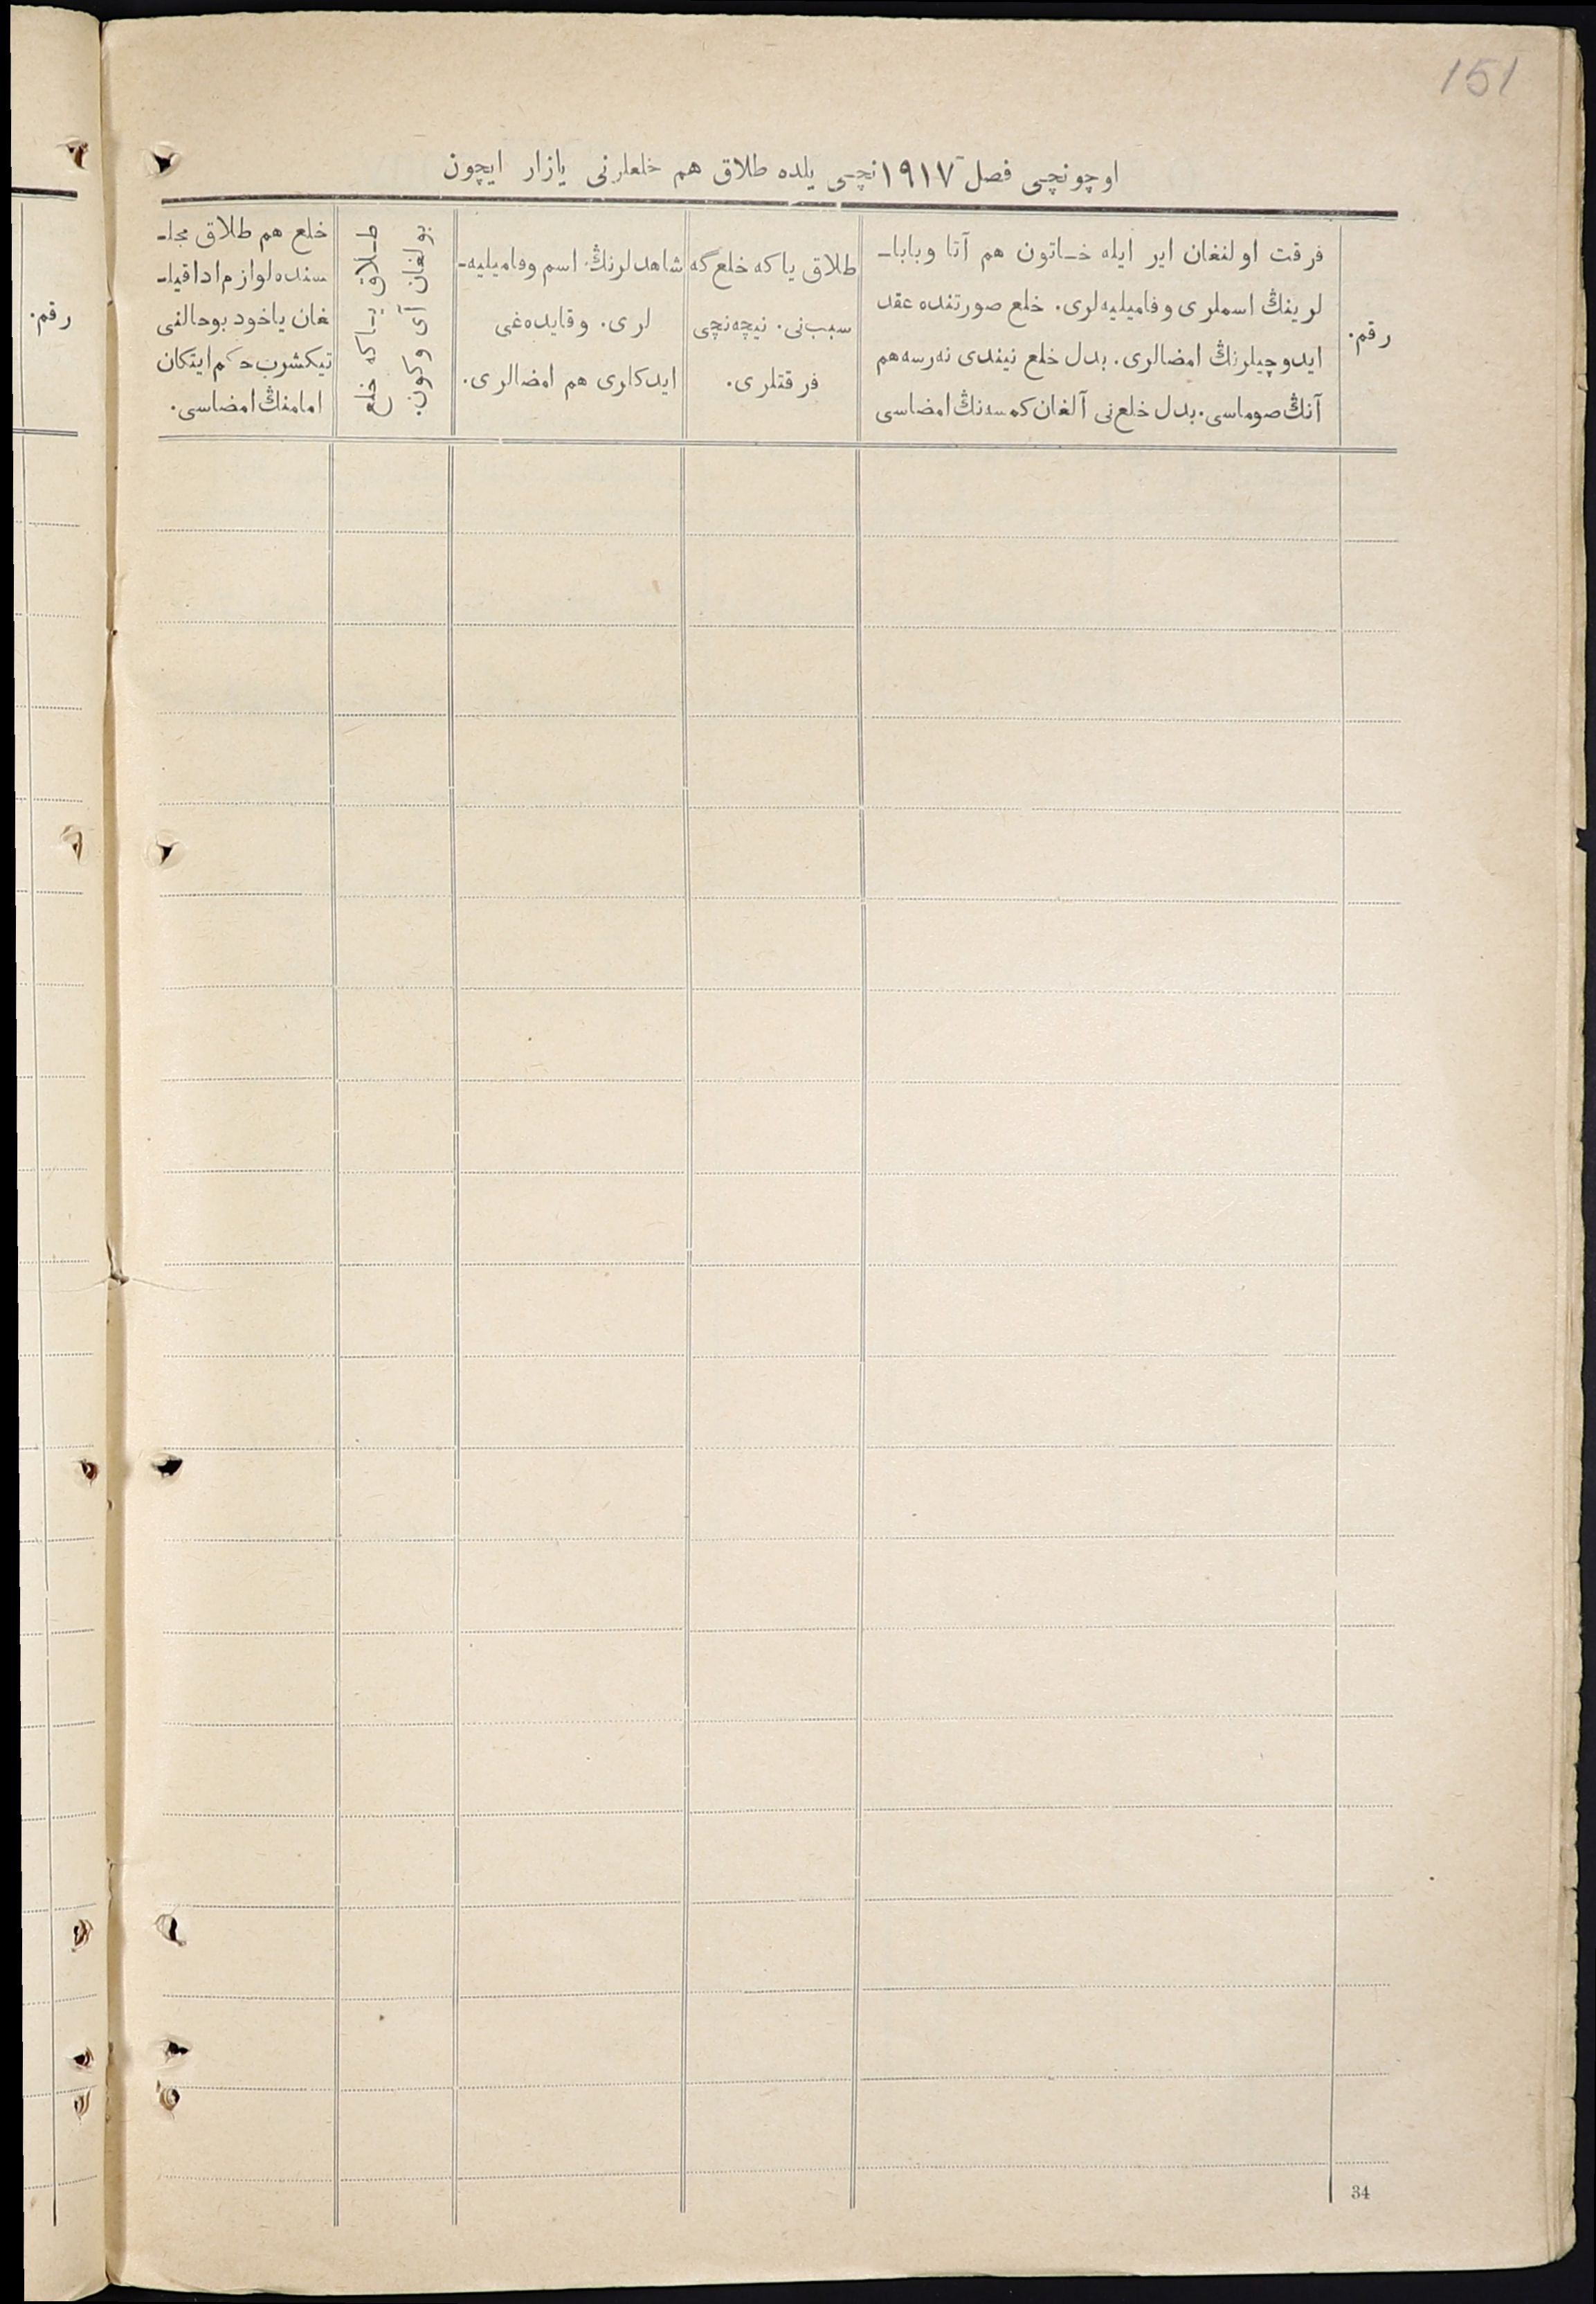 151
اوچونچی فصل ١٩١٧ نچی یلده طلاق هم خلعلرنی یازار ایچون
رقم.
فرقت اولنغان ایر ایله خـاتون هم آتا و بابا-
لرینڭ اسملری و فامیلیه‌لری. خلع صورتنده عقد
ایدوچیلرنڭ امضالری. بدل خلع نیندی نه‌رسه هم
آنڭ صوماسی. بدل خلع‌نی آلغان کمسه‌نڭ امضاسی
طلاق یا که خلع گه
سبب‌نی. نیچه‌نچی
فرقتلری.
شاهدلرنڭ اسم و فامیلیه-
لری. و قایده‌غی
ایدکلری هم امضالری.
طـلاق یـا که خلع
بولغان آی و کون.
خلع هم طلاق مجلـ
سنده لوازم ادا قیلـ
غان یاخود بو حالنی
تیکشرب حکم ایتکان
امامنڭ امضاسی.
رقم.
34